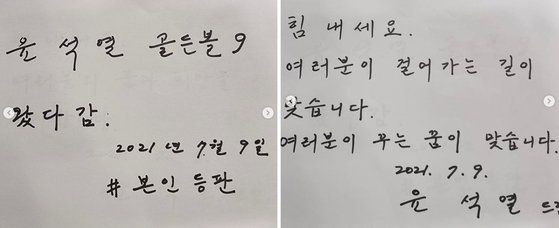 윤석열 골든볼 9
왔다 감.
2021년 7월 9일
#본인등판
힘 내세요.
여러분이 걸어가는 길이
맞습니다.
여러분이 꾸는 꿈이 맞습니다.
2021. 7. 9.
윤 석 열